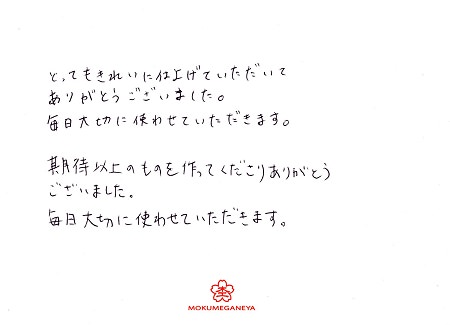 とってもきれいに仕上げていただいて
ありがとうございました。
毎日大切に使わせていただきます。
期待以上のものを作ってくださりありがとう
ございました。
毎日大切に使わせていただきます。
MOKUMEGANEYA